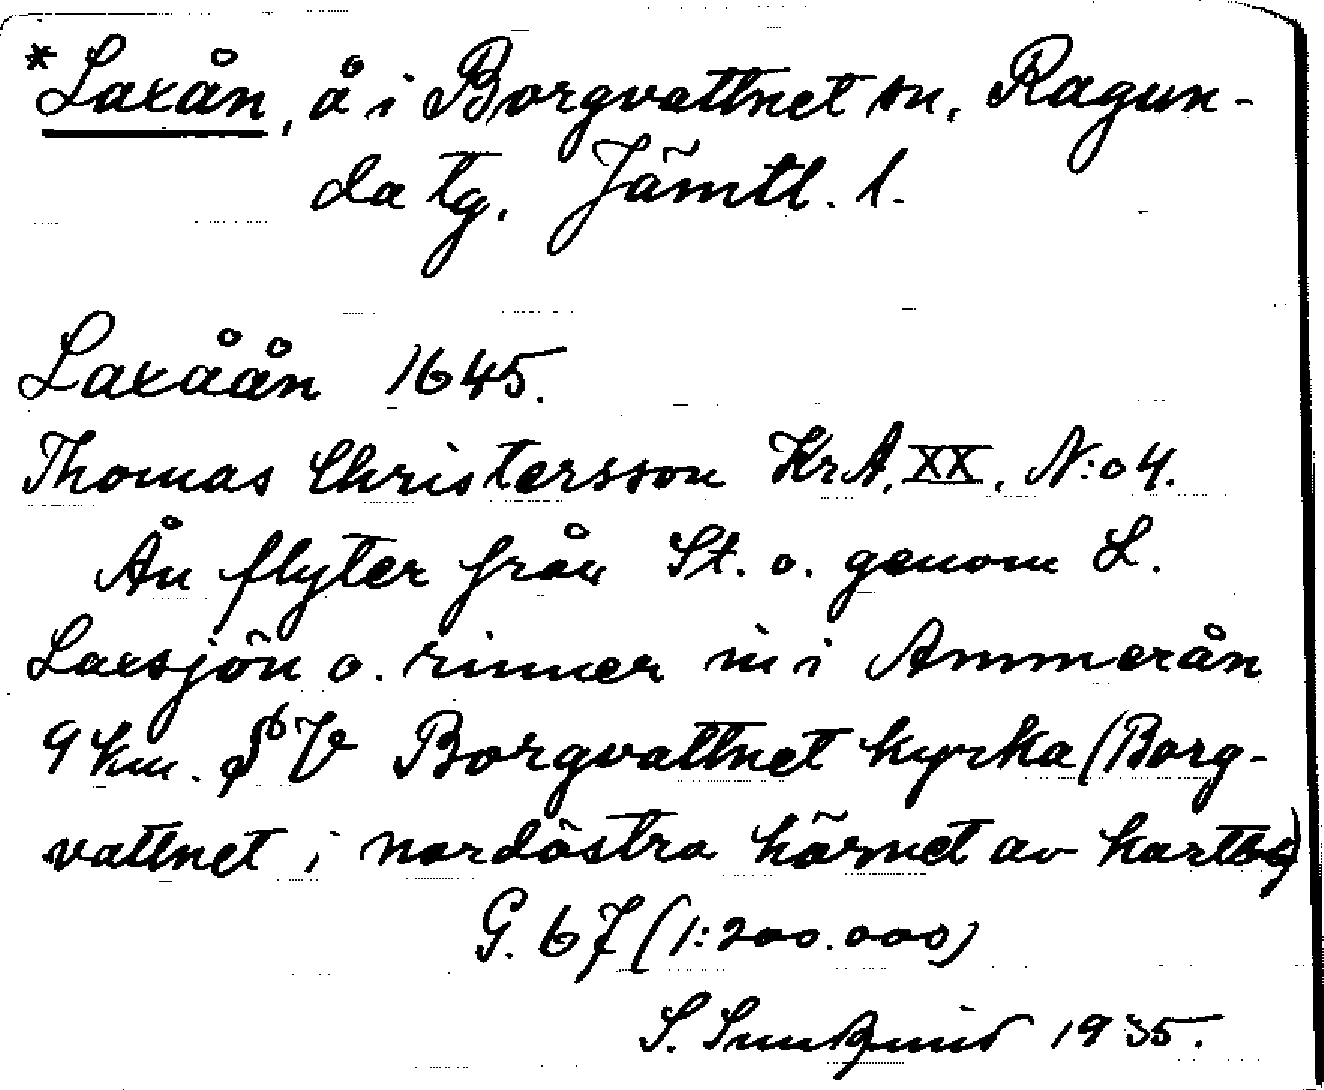 *Laxån, å i Borgvattnet sn, Ragun-
da tg. Jämtl. l.
Laxåån 1645.
Thomas Christersson Kr.A. XX. N:o 4.
Ån flyter från St. o. genom L.
Laxsjön o. rinner in i Ammerån
9 km. V Borgvattnet kyrka (Borg-
vattnet i nordöstra hörnet av kartbl)
G. 67 (1:200.000)
S. Sundquist 1935.